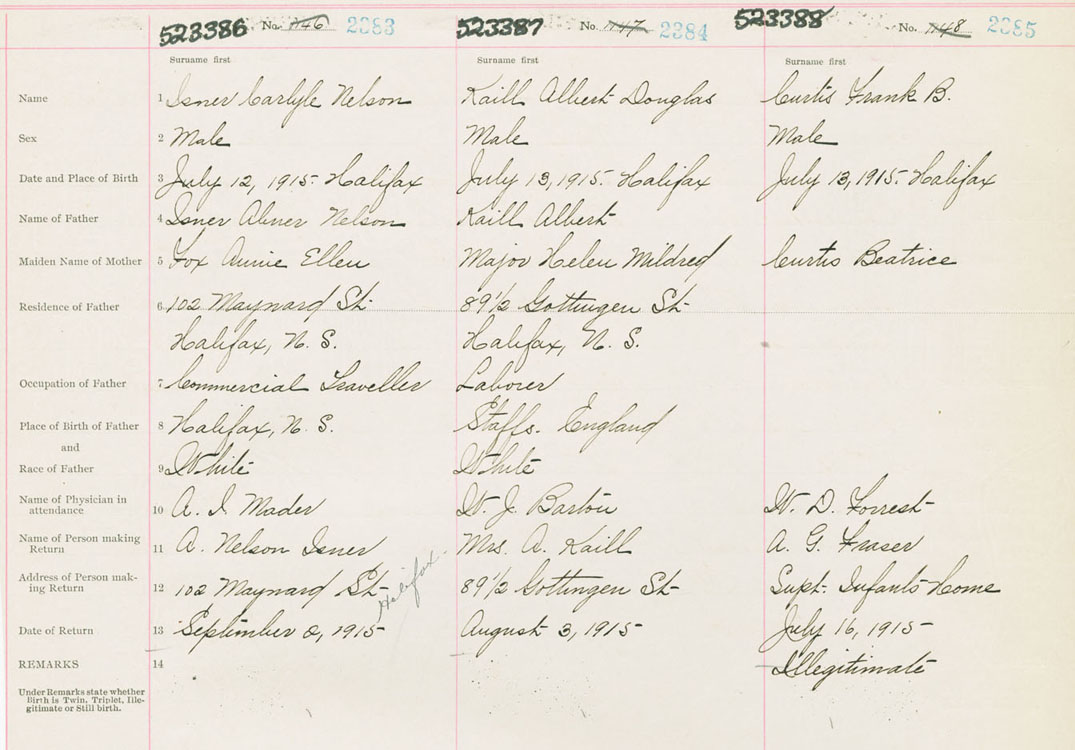 523386 No. 1146 2383 523387 No. 1147 2384 523388 No. 1148 2385
Surname first Surname first Surname first
Name 1 Isner Carlyle Nelson Kaill Albert Douglas Curtis Frank B.
Sex 2 Male Male Male
Date and Place of Birth 3 July 12, 1915. Halifax July 13, 1915. Halifax July 13, 1915. Halifax
Name of Father 4 Isner Abner Nelson Kaill Albert
Maiden Name of Mother 5 Fox Annie Ellen Major Helen Mildred Curtis Beatrice
Residence of Father 6 102 Maynard St. 89 1/2 Gottingen St.
Halifax, N. S. Halifax, N. S.
Occupation of Father 7 Commercial Traveller Laborer
Place of Birth of Father 8 Halifax, N. S. Staffs. England
and
Race of Father 9 White White
Name of Physician in
attendance 10 A. I. Mader W. J. Barton W. D. Forrest
Name of Person making
Return 11 A. Nelson Isner Mrs. A. Kaill A. G. Fraser
Address of Person mak-
ing Return 12 102 Maynard St. Halifax. 89 1/2 Gottingen St. Supt. Infants Home
Date of Return 13 September 8, 1915 August 3, 1915 July 16, 1915
REMARKS 14 Illegitimate
Under Remarks state whether
Birth is Twin, Triplet, Ille-
gitimate or Still birth.